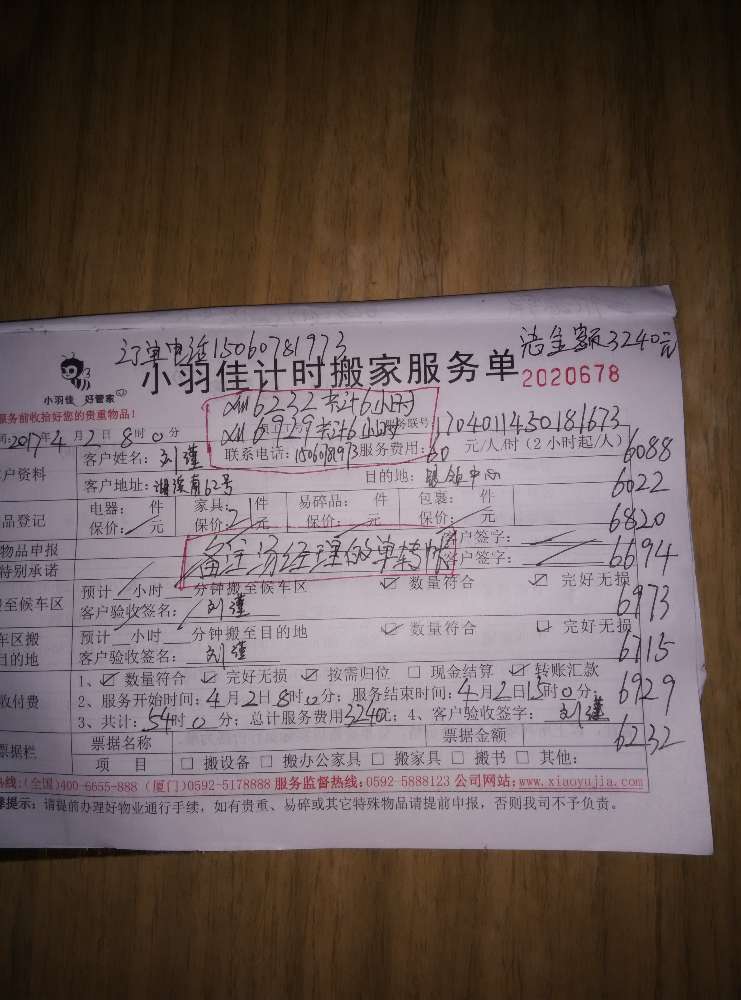 订单电话15060781973
总金额3240元
小羽佳 好管家
小羽佳计时搬家服务单
2020678
服务前收拾好您的贵重物品!
6232共计6小时
6929共计6小时
服务联号 1704011450181673
间:2017年4月2日8时0分
联系电话:15060781973 服务费用:60 元/人/时(2小时起/人)
6088
户资料 客户姓名:刘瑾
客户地址:湖滨南62号 目的地:银领中心
6022
品登记 电器: 件 家具: 件 易碎品: 件 包裹: 件
保价: 元 保价: 元 保价: 元 保价: 元
6820
物品申报 客户签字:
备注汤经理的单转帐
特别承诺 客户签字:
6694
至候车区 预计 小时 分钟搬至候车区 ☑ 数量符合 ☑ 完好无损
客户验收签名:刘瑾
6973
车区搬目的地 预计 小时 分钟搬至目的地 ☑ 数量符合 ☑ 完好无损
客户验收签名:刘瑾
6715
收付费 1、☑ 数量符合 ☑ 完好无损 ☑ 按需归位 □ 现金结算 ☑ 转账汇款
2、服务开始时间:4月2日8时0分;服务结束时间:4月2日15时0分;
6929
3、共计:54时0分;总计服务费用3240元;4、客户验收签字:刘瑾
6232
票据栏 票据名称 票据金额
项 目 □ 搬设备 □ 搬办公家具 □ 搬家具 □ 搬书 □ 其他:
热线:(全国)400-6655-888 (厦门)0592-5178888 服务监督热线:0592-5888123 公司网站:www.xiaoyujia.com
提示:请提前办理好物业通行手续,如有贵重、易碎或其它特殊物品请提前申报,否则我司不予负责。